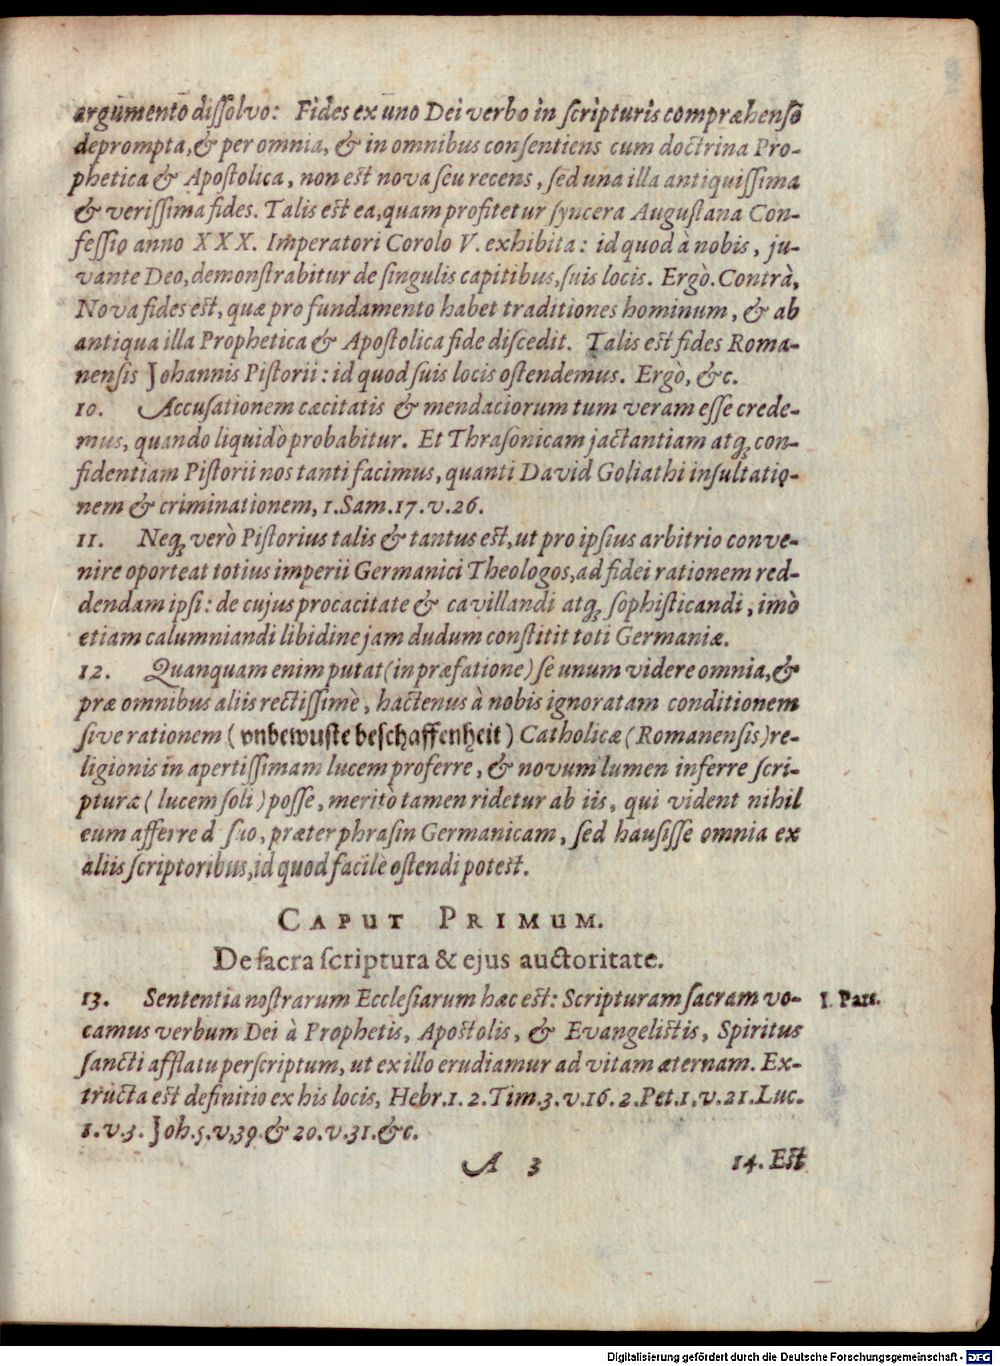 argumento dissolvo: Fides ex uno Dei verbo in scripturis compræhenso
deprompta, & per omnia, & in omnibus consentiens cum doctrina Pro-
phetica & Apostolica, non est nova seu recens, sed una illa antiquissima
& verissima fides. Talis est ea, quam profitetur syncera Augustana Con-
fessio anno XXX. Imperatori Corolo V. exhibita: id quod à nobis, ju-
vante Deo, demonstrabitur de singulis capitibus, suis locis. Ergò. Contrà,
Nova fides est, quæ pro fundamento habet traditiones hominum, & ab
antiqua illa Prophetica & Apostolica fide discedit. Talis est fides Roma-
nensis Johannis Pistorii: id quod suis locis ostendemus. Ergò, &c.
10. Accusationem cæcitatis & mendaciorum tum veram esse crede-
mus, quando liquidò probabitur. Et Thrasonicam jactantiam atq; con-
fidentiam Pistorii nos tanti facimus, quanti David Goliathi insultatio-
nem & criminationem, 1. Sam. 17. v. 26.
11. Neq; verò Pistorius talis & tantus est, ut pro ipsius arbitrio conve-
nire oporteat totius imperii Germanici Theologos, ad fidei rationem red-
dendam ipsi: de cujus procacitate & cavillandi atq; sophisticandi, imò
etiam calumniandi libidine jam dudum constitit toti Germaniæ.
12. Quanquam enim putat (in præfatione) se unum videre omnia, &
præ omnibus aliis rectissimè, hactenus à nobis ignoratam conditionem
sive rationem (vnbewuste beschaffenheit) Catholicæ (Romanensis) re-
ligionis in apertissimam lucem proferre, & novum lumen inferre scri-
pturæ (lucem soli) posse, meritò tamen ridetur ab iis, qui vident nihil
eum afferre d suo, præter phrasin Germanicam, sed hausisse omnia ex
aliis scriptoribus, id quod facilè ostendi potest.
CAPUT PRIMUM.
De sacra scriptura & ejus auctoritate.
13. Sententia nostrarum Ecclesiarum hæc est: Scripturam sacram vo- I. Pars.
camus verbum Dei à Prophetis, Apostolis, & Evangelistis, Spiritus
sancti afflatu perscriptum, ut ex illo erudiamur ad vitam æternam. Ex-
tructa est definitio ex his locis, Hebr. 1. 2. Tim. 3. v. 16. 2. Pet. 1. v. 21. Luc.
1. v. 3. Joh. 5. v, 39. & 20. v. 31. &c.
A 3 14. Est
Digitalisierung gefördert durch die Deutsche Forschungsgemeinschaft - DFG